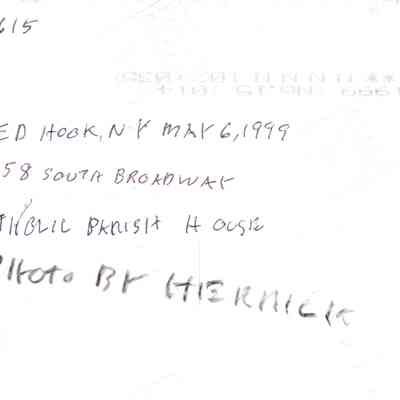 615
ED HOOK, N Y MAY 6, 1999
58 SOUTH BROADWAY
THOLIC PARISH HOUSE
PHOTO BY HERRICK